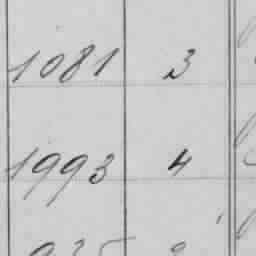 1081 3
1993 4